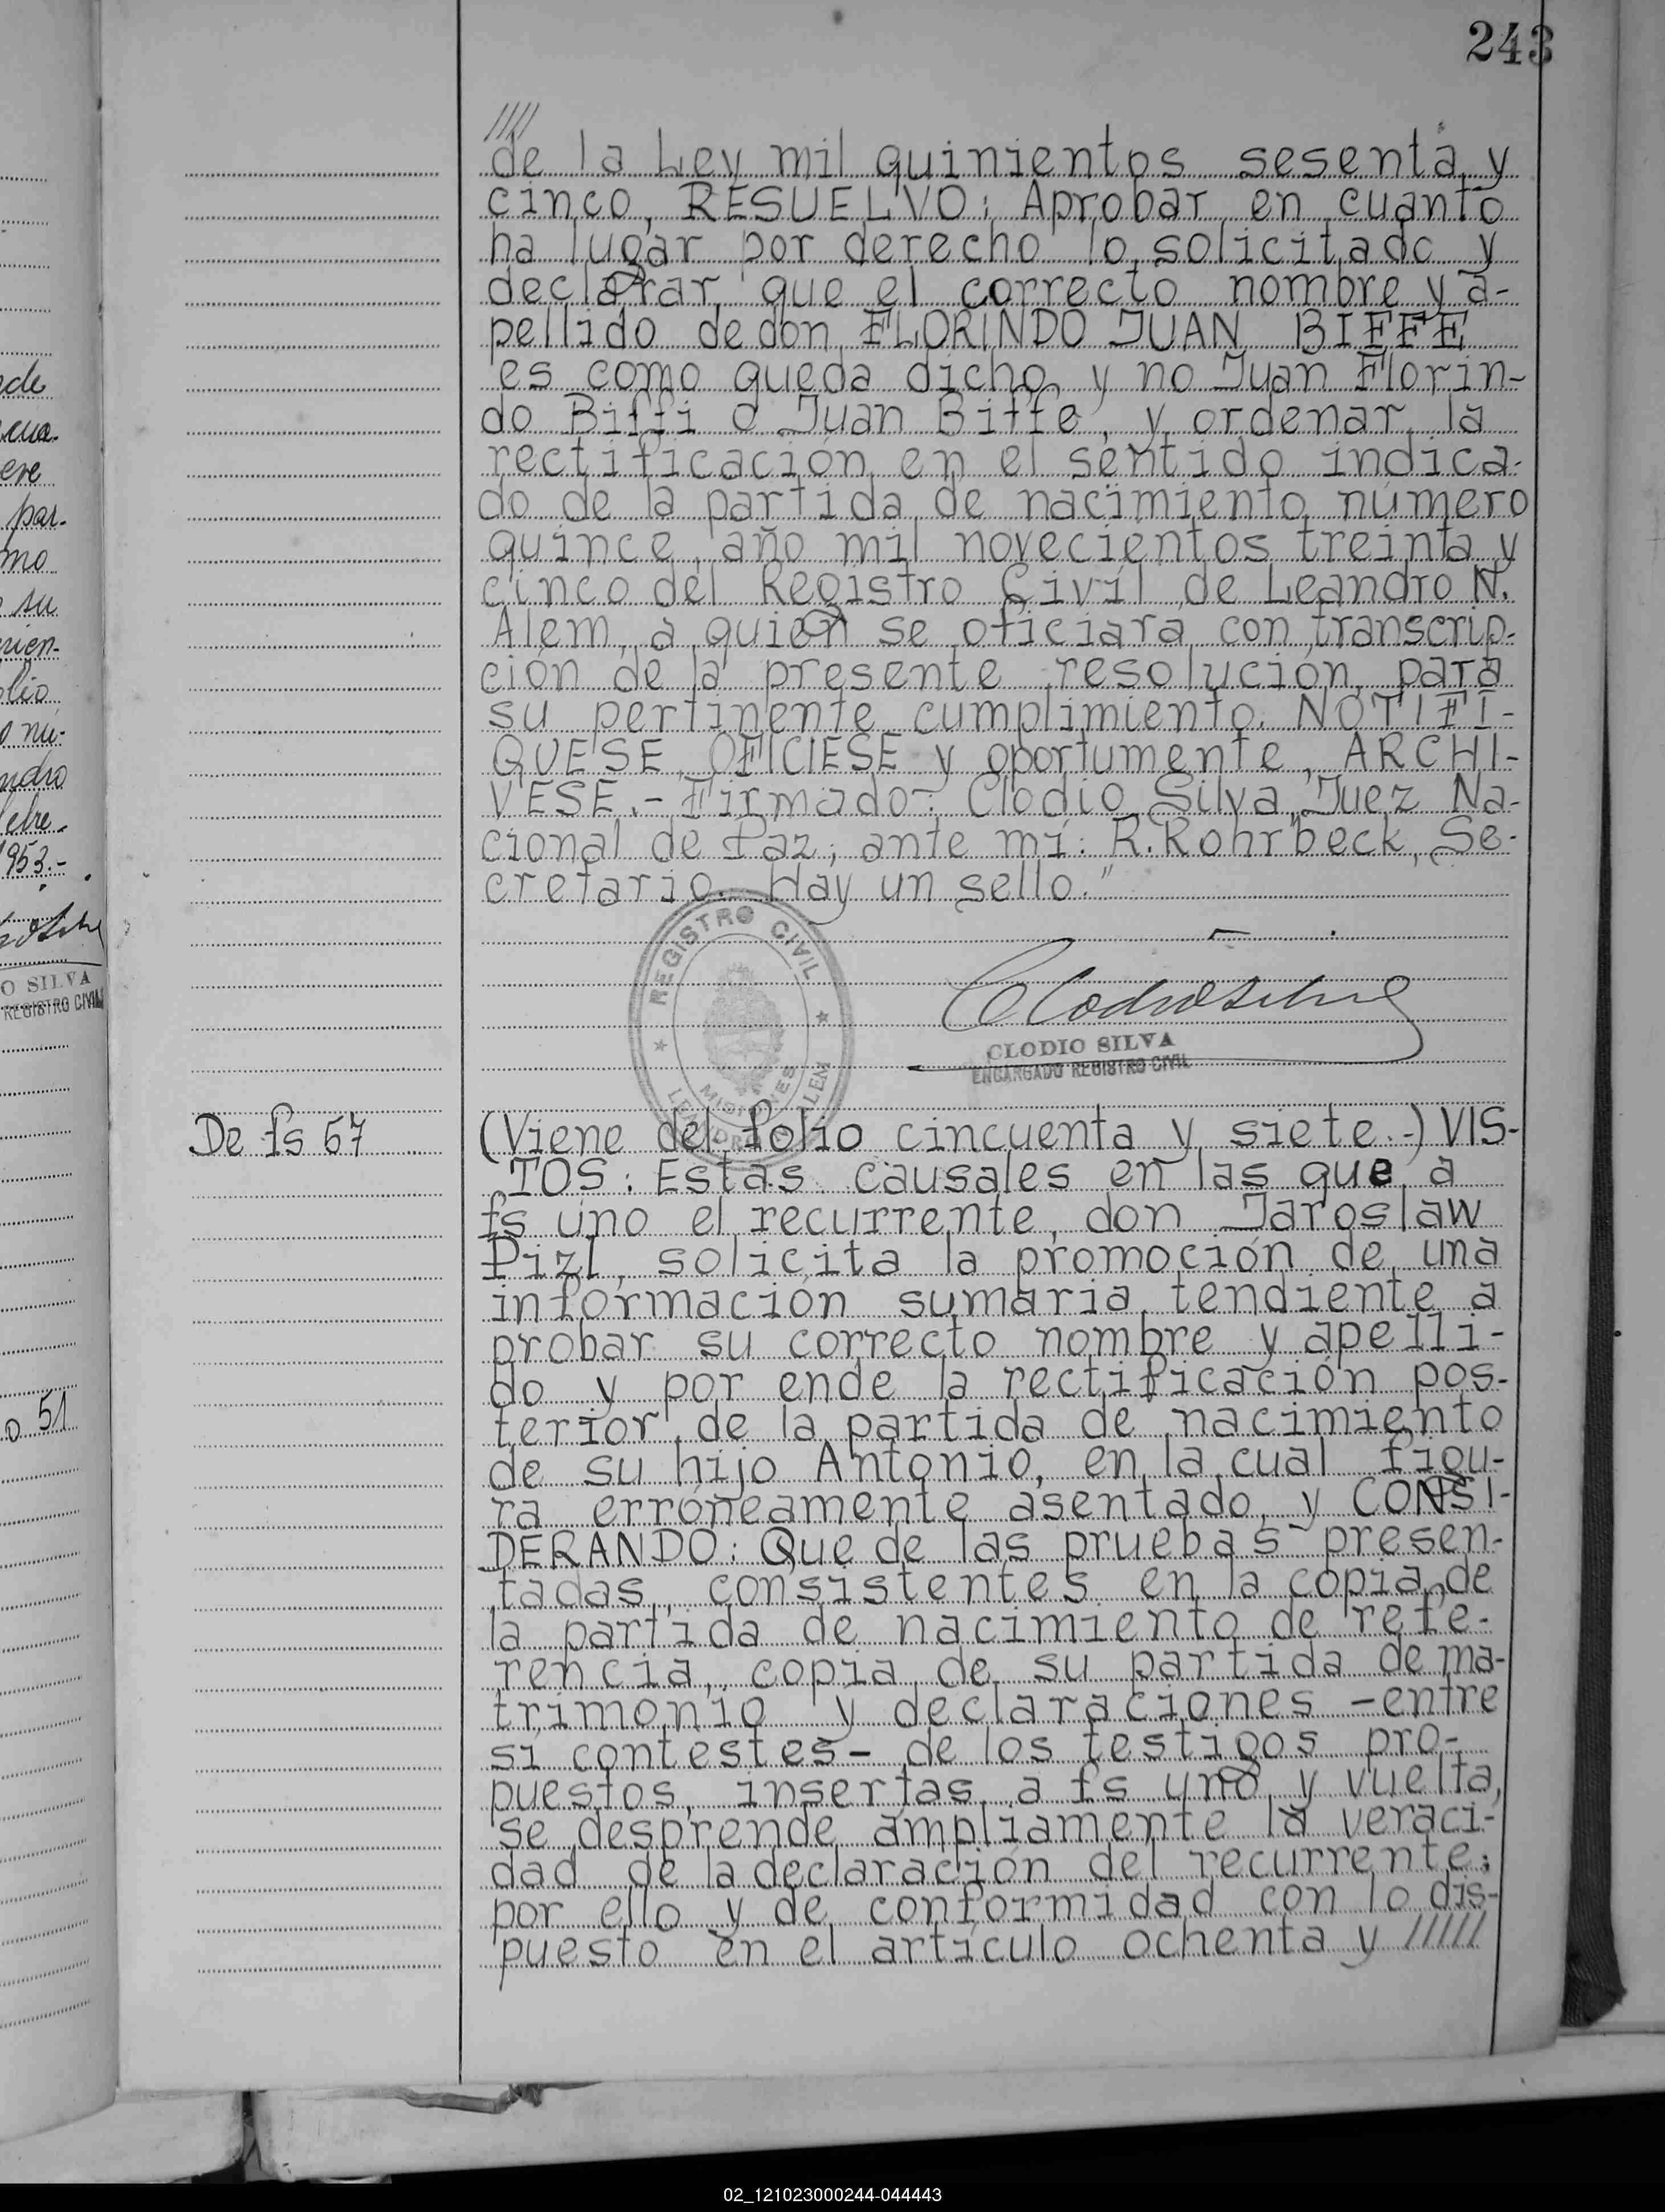 243
////
de la Ley mil quinientos sesenta y
cinco, RESUELVO: Aprobar en cuanto
ha lugar por derecho lo solicitado y
declarar que el correcto nombre y a-
pellido de don FLORINDO JUAN BIFFE
es como queda dicho, y no Juan Florin-
do Biffi o Juan Biffe, y ordenar la
rectificación en el sentido indica-
do de la partida de nacimiento número
quince, año mil novecientos treinta y
cinco del Registro Civil de Leandro N.
Alem, a quien se oficiara con transcrip-
ción de la presente resolución para
su pertinente cumplimiento. NOTIFI-
QUESE, OFICIESE y oportumente, ARCHI-
VESE.- Firmado: Clodio Silva, Juez Na-
cional de Paz; ante mí: R. Rohrbeck, Se-
cretario. Hay un sello."
REGISTRO CIVIL
MISIONES
LEANDRO N. ALEM
Clodio Silva
CLODIO SILVA
ENCARGADO REGISTRO CIVIL
De fs 57
(Viene del folio cincuenta y siete.-) VIS-
TOS: Estas causales en las que a
fs uno el recurrente, don Jaroslaw
Pizl, solicita la promoción de una
información sumaria tendiente a
probar su correcto nombre y apelli-
do y por ende la rectificación pos-
terior de la partida de nacimiento
de su hijo Antonio, en la cual figu-
ra erróneamente asentado, y CONSI-
DERANDO: Que de las pruebas presen-
tadas, consistentes en la copia de
la partida de nacimiento de refe-
rencia, copia de su partida de ma-
trimonio y declaraciones -entre
sí contestes- de los testigos pro-
puestos, insertas a fs uno y vuelta,
se desprende ampliamente la veraci-
dad de la declaración del recurrente;
por ello y de conformidad con lo dis-
puesto en el artículo ochenta y /////
nde
cua-
eve
par-
mo
su
rien-
olio
o nú-
andro
1953.-
O SILVA
REGISTRO CIVIL
o 51
02_121023000244-044443